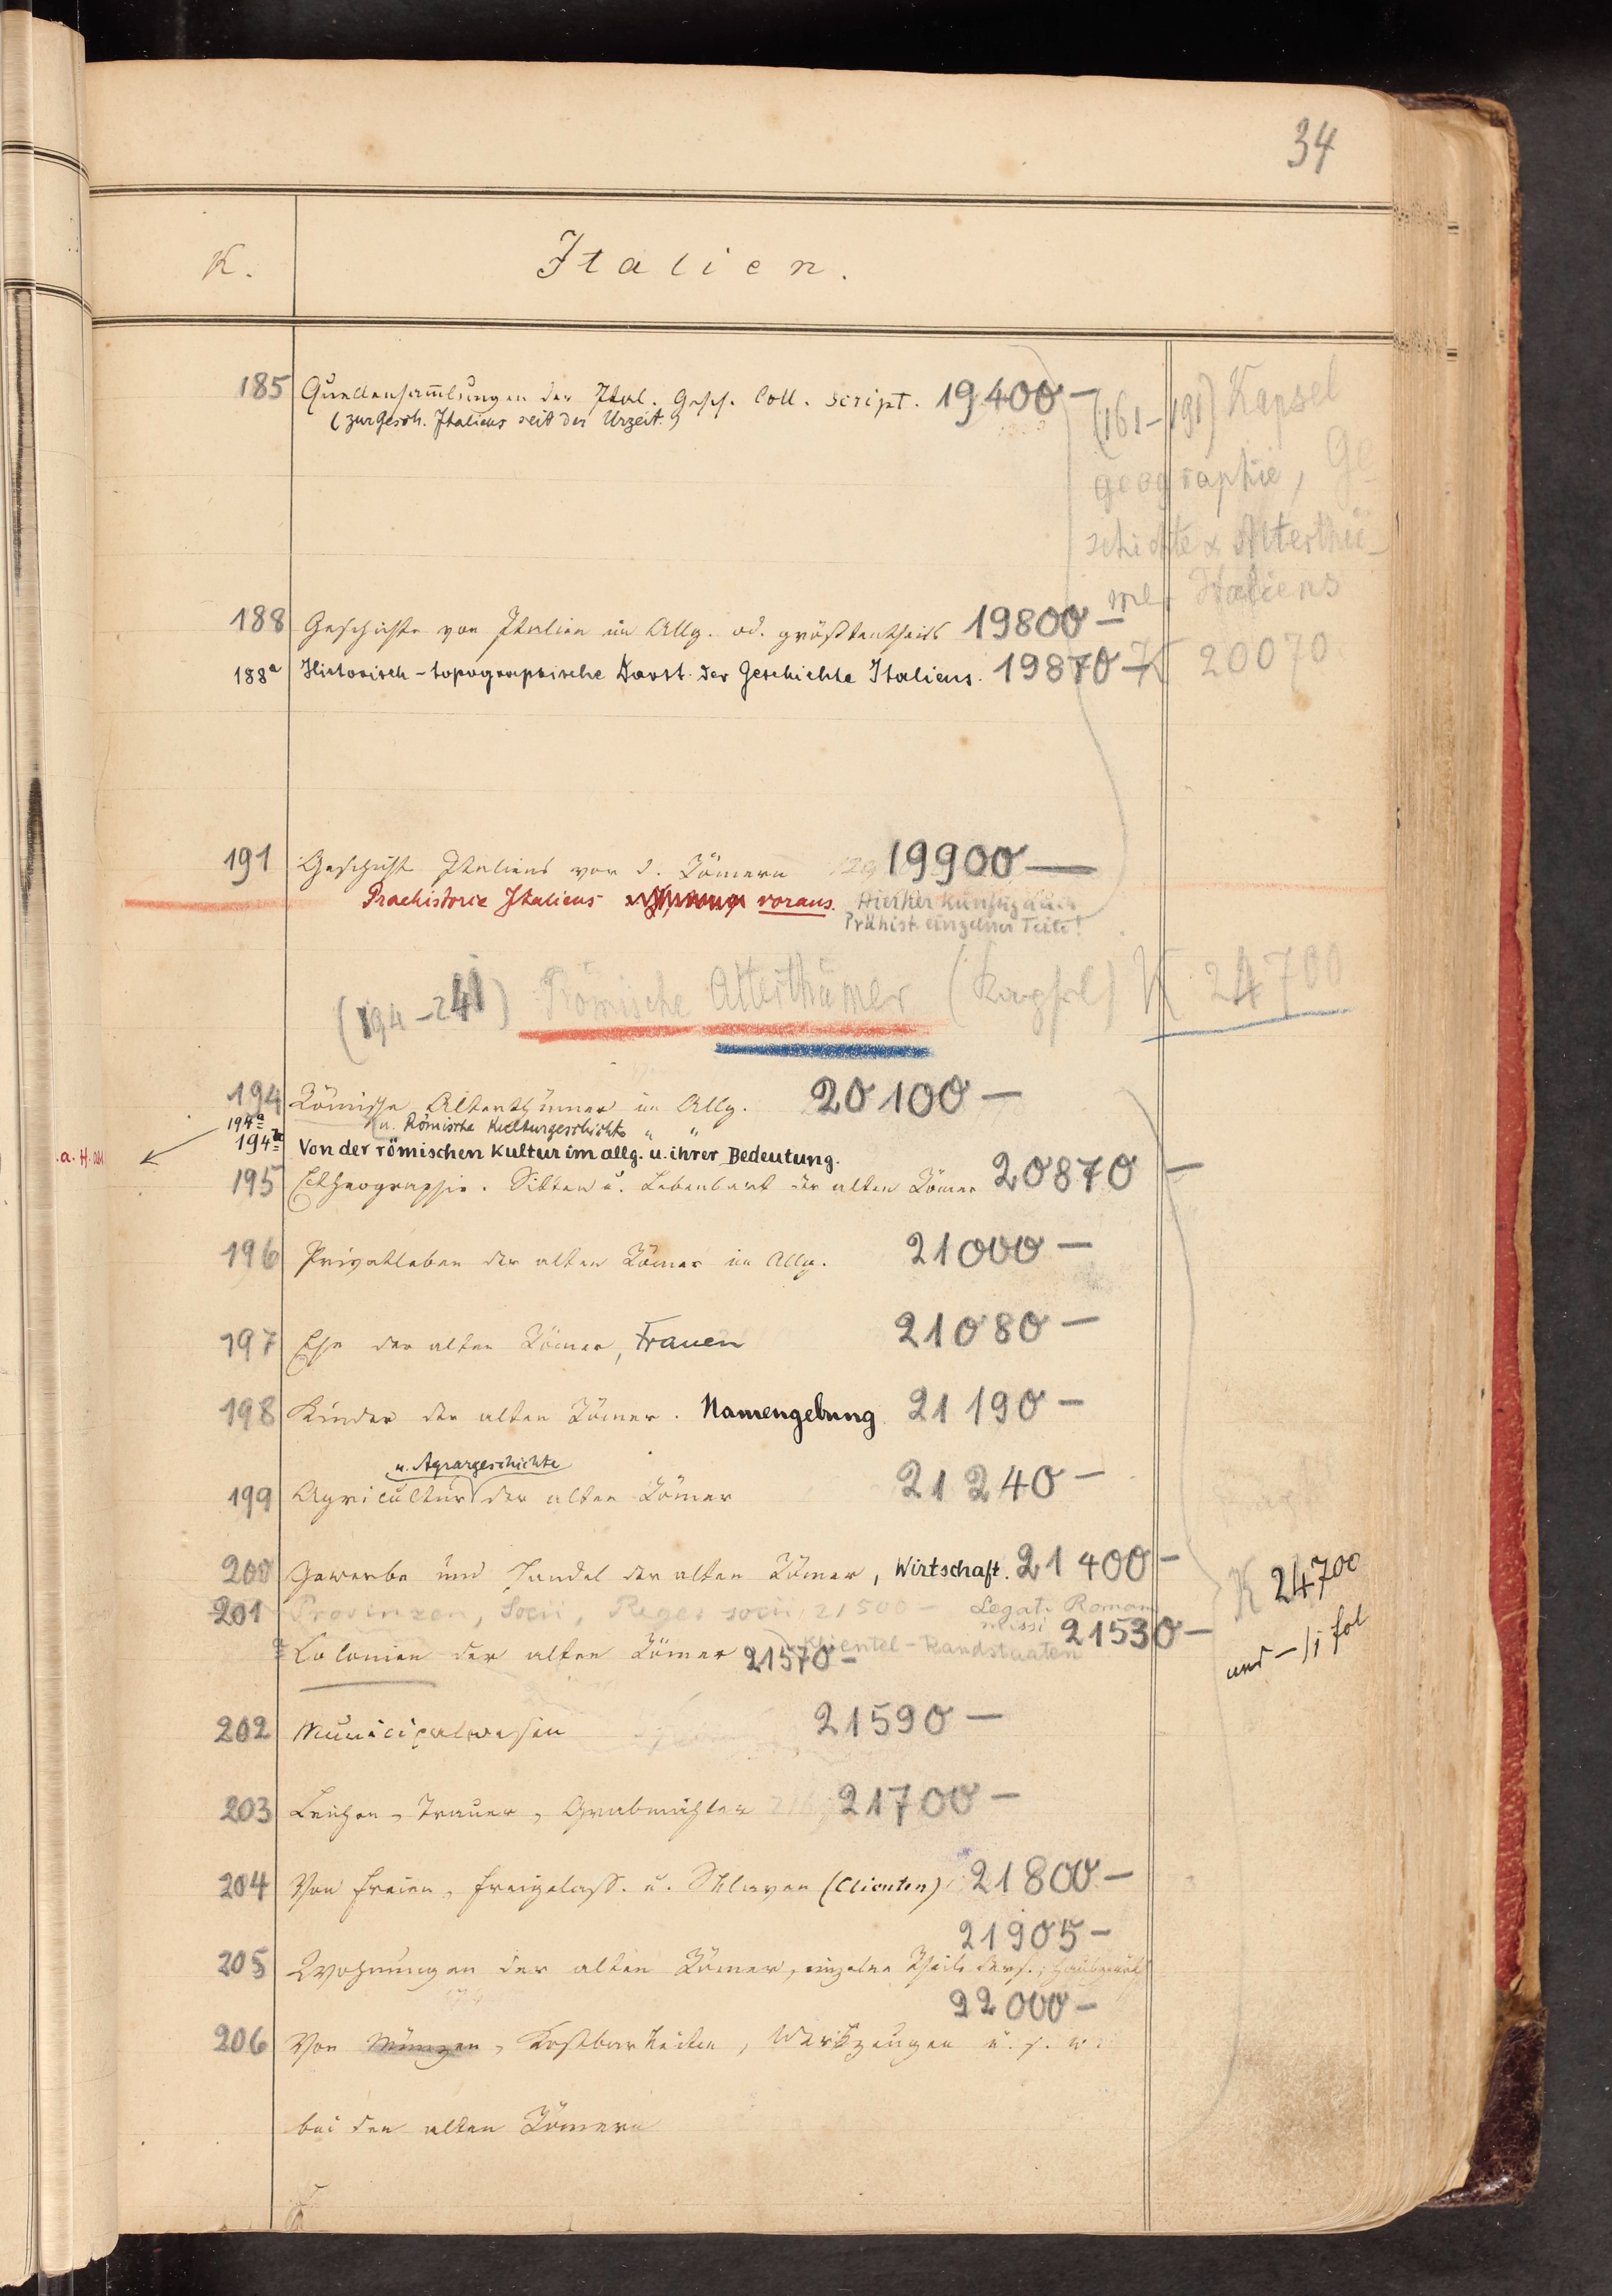 34
K. Italien.
185 Quellensam̄lungen der Ital. Gesch. Coll. script. 19400 —
(zur Gesch. Italiens seit der Urzeit.)
(161-191) Kapsel
geographie, Ge
schichte & Alterthü-
mer Italiens
K 20070
188 Geschichte von Italien im Allg. od. größtentheils 19800 —
188a Historisch-topographische Darst. der Geschichte Italiens. 19870 —
191 Geschichte Italiens vor d. Römern 19900 —
Praehistorie Italiens voraus. Hierher künftig auch
Prähist. einzelner Teile!
(194-241) Römische Alterthümer (Kapsel) K 24700
194 Römische Alterthümer im Allg. 20100 —
194a u. Römische Kulturgeschichte " "
194b Von der römischen Kultur im allg. u. ihrer Bedeutung.
.a. H.
195 Ethnographie. Sitten u. Lebensart der alten Römer 20870 —
196 Privatleben der alten Römer im Allg. 21000 —
197 Ehe der alten Römer, Frauen 21080 —
198 Kinder der alten Römer. Namengebung. 21190 —
u. Agrargeschichte
199 Agricultur der alten Römer 21240 —
200 Gewerbe und Handel der alten Römer, Wirtschaft. 21400 —
K 24700
und — fol
201 Provinzen, Socii, Reges socii, 21500 — Legati Romani
missi 21530 —
Klientel-Randstaaten
a Colonien der alten Römer 21570 —
202 Municipalwesen 21590 —
203 Leichen, Trauer, Grabmähler 21700 —
204 Von Freien, Freigelass. u. Sklaven (Clienten) 21800 —
21905 —
205 Wohnungen der alten Römer, einzelne Theile ders.; Hausgeräth
22000 —
206 Von Münzen, Kostbarkeiten, Werkzeugen u. s. w.
bei den alten Römern